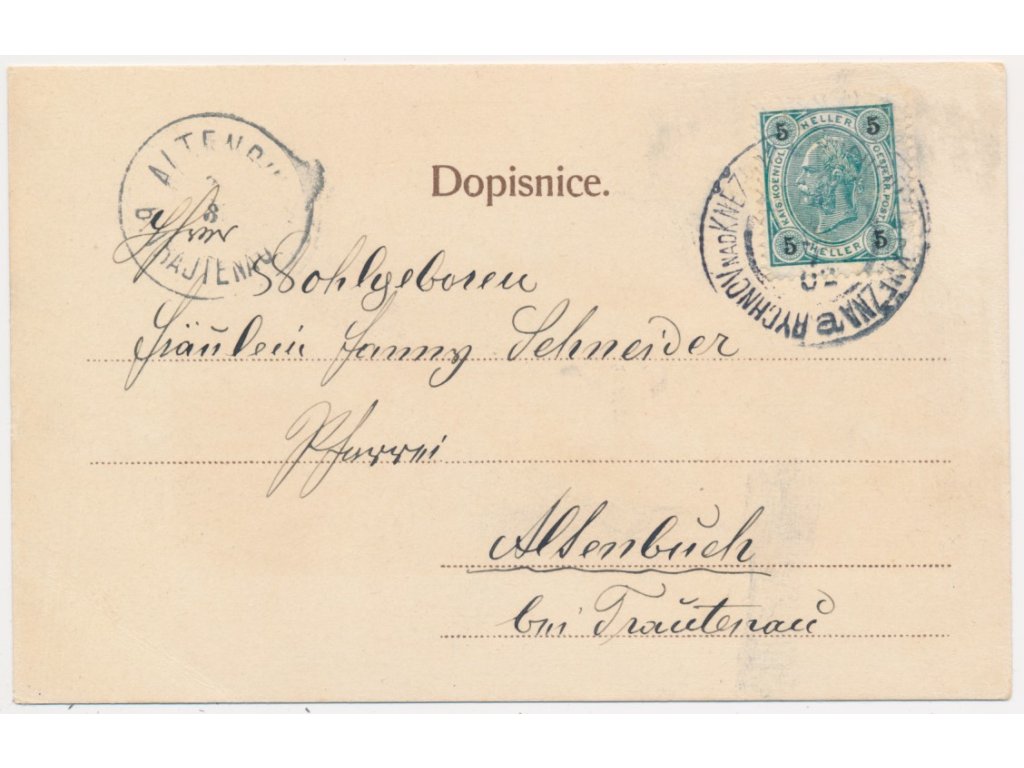 Dopisnice.
5 HELLER 5
KAIS. KOENIGL. OESTERR. POST.
5 HELLER 5
RYCHNOV NAD KNĚŽNOU
02
8
Ihrer
Wohlgeboren
Fräulein Fanny Schneider
Pfarrei
Altenbuch
bei Trautenau